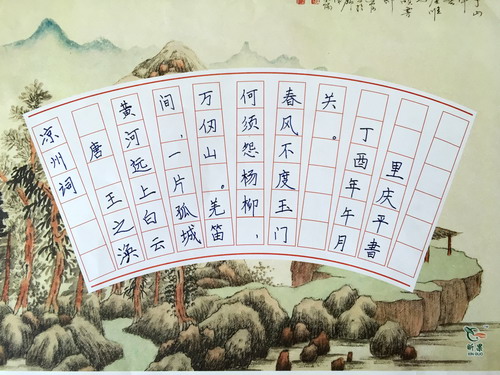 凉州词
唐 王之涣
黄河远上白云
间，一片孤城
万仞山。羌笛
何须怨杨柳，
春风不度玉门
关。
丁酉年午月
里庆平书
昕果
XIN GUO